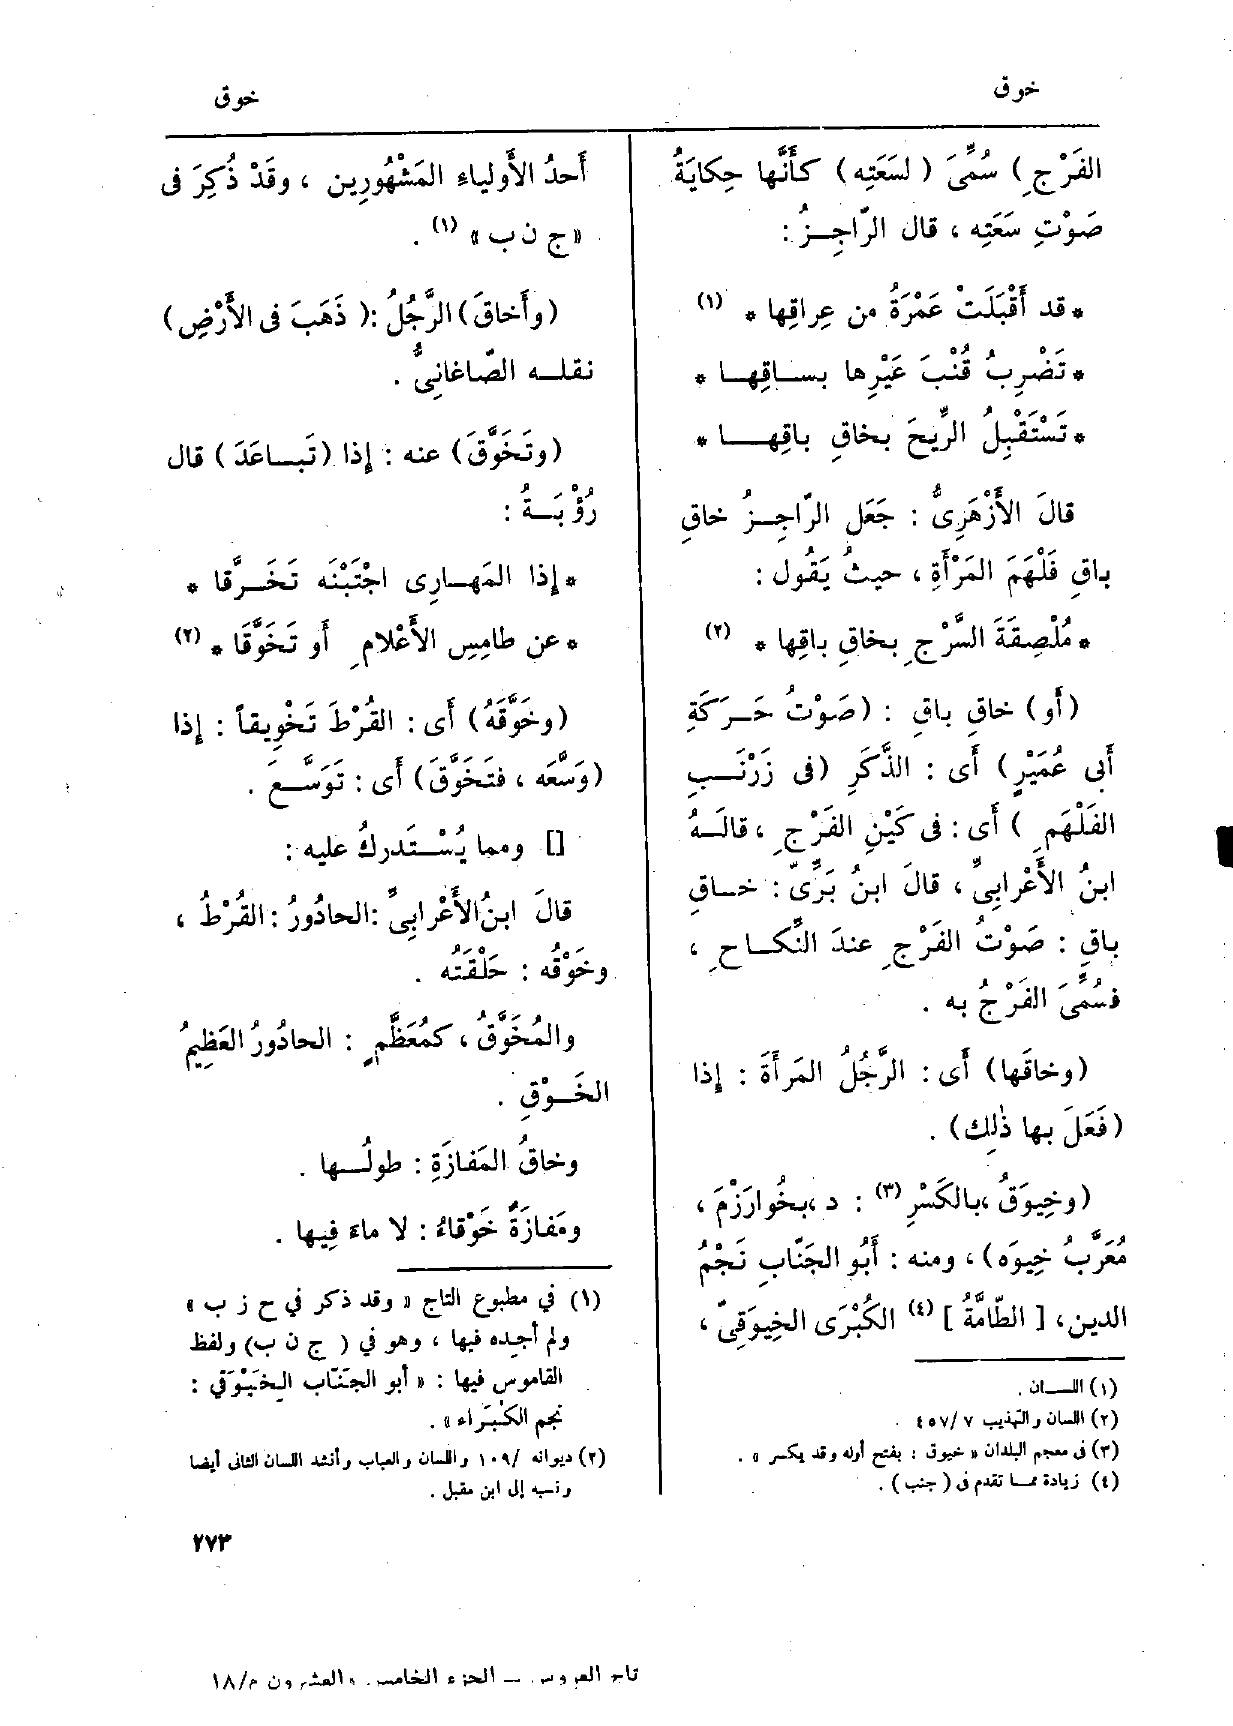 خوق
خوق
الفَرْجِ) سُمِّىَ (لسَعَتِه) كأَنَّها حِكايَةُ
صَوْتِ سَعَتِه ، قال الرّاجِـزُ :
* قد أَقْبَلَتْ عَمْرَةُ من عِراقِها * (١)
* تَضْرِبُ قُنْبَ عَيْرِها بســاقِهــا *
* تَسْتَقْبِلُ الرِّيحَ بخاقِ باقِهــا *
قالَ الأَزْهَرِىُّ : جَعَل الرّاجِـزُ خاقِ
باقِ فَلْهَمَ المَرْأَةِ ، حيثُ يَقُول :
* مُلْصِقَةَ السَّرْجِ بخاقِ باقِها * (٢)
(أَو) خاقِ باقِ : (صَوْتُ حَـرَكَةِ
أَبى عُمَيْرٍ) أَى : الذَّكَرِ (فى زَرْنَـبِ
الفَلْهَمِ ) أَى : فى كَيْنِ الفَرْجِ ، قالَـهُ
ابنُ الأَعْرابِىِّ ، قالَ ابنُ بَرِّىّ : خــاقِ
باقِ : صَوْتُ الفَرْجِ عندَ النِّكــاحِ ،
فسُمِّىَ الفَرْجُ به .
(وخاقَها) أَى : الرَّجُلُ المَرأَةَ : إِذا
(فَعَلَ بها ذٰلِك) .
(وخِيوَقُ ،بالكَسْرِ (٣) : د ،بخُوارَزْمَ ،
مُعَرَّبُ خِيوَه) ، ومنه : أَبُو الجَنّابِ نَجْمُ
الدين، [ الطّامَّةُ ] (٤) الكُبْرَى الخِيوَقِىّ ،
(١) اللســان .
(٢) اللسان والتهذيب ٧ /٤٥٧ .
(٣) فى معجم البلدان « خيوق : بفتح أوله وقد يكسر » .
(٤) زيادة ممــا تقدم فى (جنب) .
أَحدُ الأَولياءِ المَشْهُورِين ، وقَدْ ذُكِرَ فى
«ج ن ب» (١) .
(وأَخاقَ) الرَّجُلُ :( ذَهَبَ فى الأَرْضِ)
نقلــه الصّاغانِىُّ .
(وتَخَوَّقَ) عنه : إِذا (تَبــاعَدَ) قال
رُؤْبَــةُ :
* إِذا المَهــارِى اجْتَبْنَه تَخَــرَّقا *
* عن طامِسِ الأَعْلامِ أَو تَخَوَّقَا * (٢)
(وخَوَّقَهُ) أَى : القُرْطَ تَخْوِيقاً : إِذا
(وَسَّعَه ، فتَخَوَّقَ) أَى : تَوَسَّــعَ .
[] ومما يُسْــتَدركُ عليه :
قالَ ابنُ الأَعْرابِىِّ :الحادُورُ : القُرْطُ ،
وخَوْقُه : حَلْقَتُه .
والمُخَوَّقُ ، كمُعَظَّمٍ : الحادُورُ العَظِيمُ
الخَــوْقِ .
وخاقُ المَفازَةِ : طولُــها .
ومَفازَةٌ خَوْقاءُ : لا ماءَ فِيها .
(١) في مطبوع التاج « وقد ذكر في ح ز ب »
ولم أجده فيها ، وهو في ( ج ن ب) ولفظ
القاموس فيها : « أبو الجَنّاب الخَيْوَقي :
نجم الكُبَراء » .
(٢) ديوانه /١٠٩ واللسان والعباب وأنشد اللسان الثانى أيضا
ونسبه إلى ابن مقبل .
٢٧٣
تاج العروس ــ الجزء الخامس والعشرون م/١٨